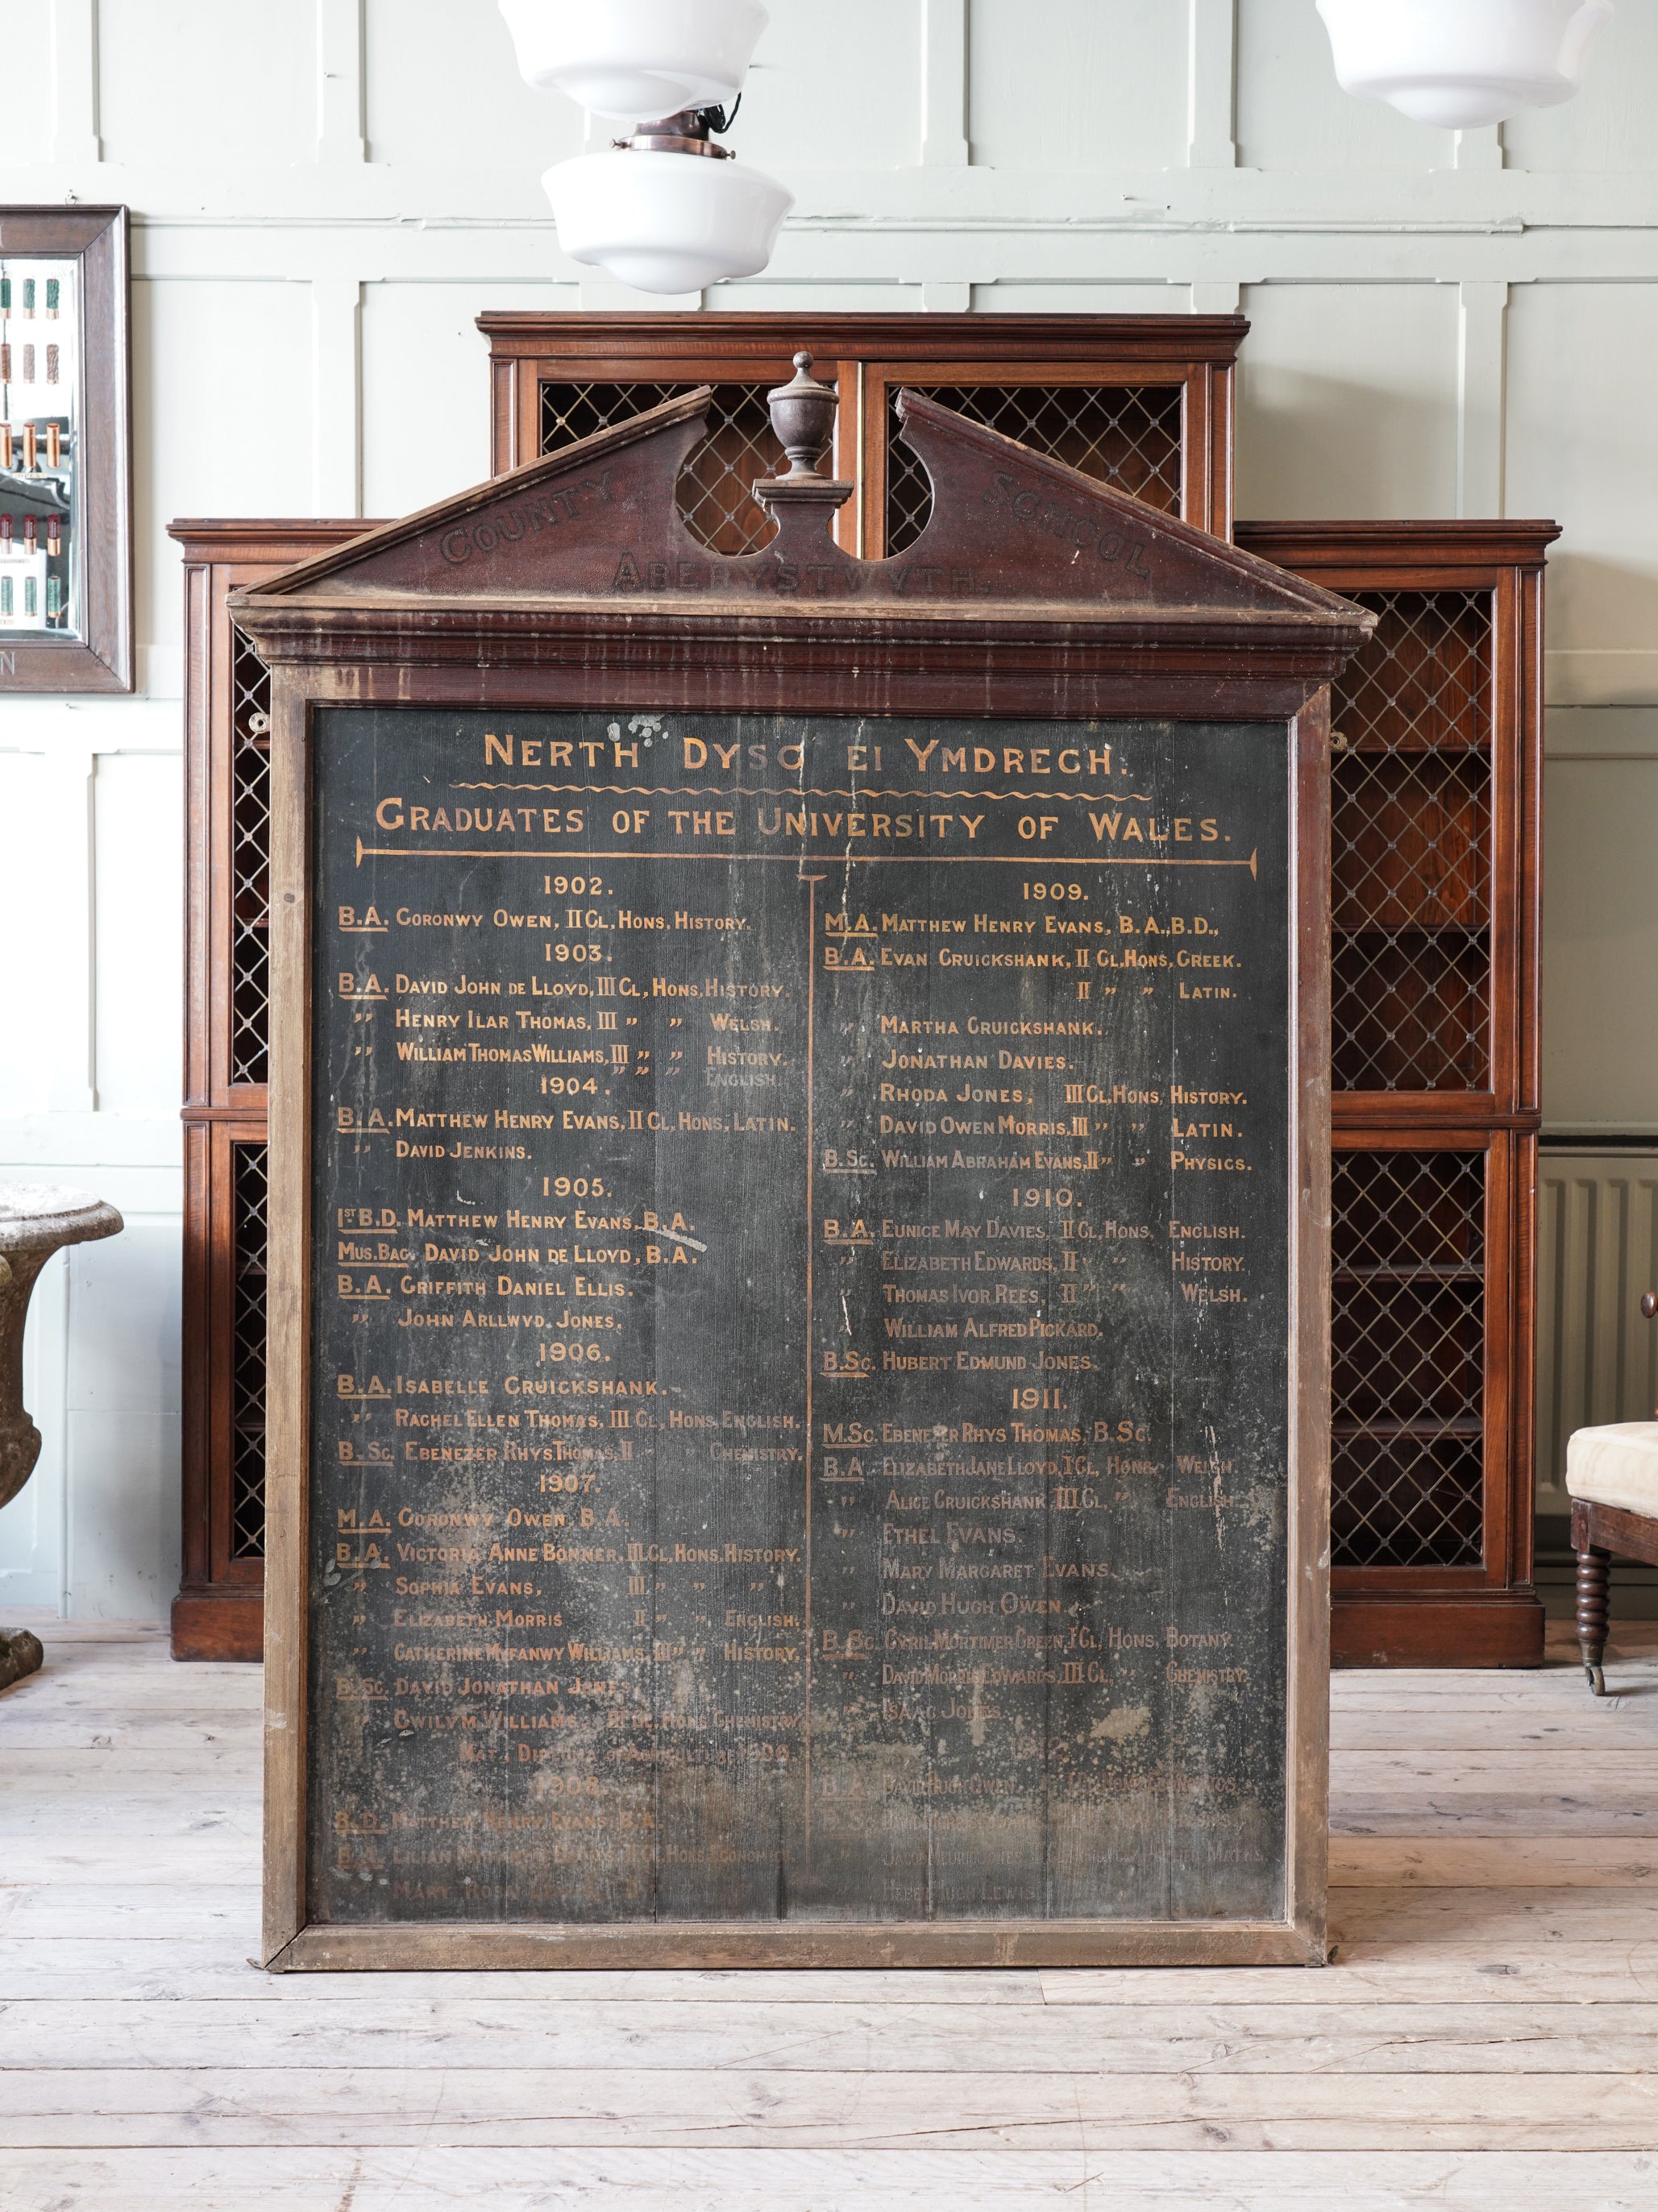 COUNTY SCHOOL
ABERYSTWYTH.
NERTH DYSG EI YMDRECH.
GRADUATES OF THE UNIVERSITY OF WALES.
1902.
B.A. GORONWY OWEN, II CL, HONS. HISTORY.
1903.
B.A. DAVID JOHN DE LLOYD, III CL, HONS, HISTORY.
" HENRY ILAR THOMAS, III " " WELSH.
" WILLIAM THOMAS WILLIAMS, III " " HISTORY.
" " " ENGLISH.
1904.
B.A. MATTHEW HENRY EVANS, II CL, HONS, LATIN.
" DAVID JENKINS.
1905.
1ST B.D. MATTHEW HENRY EVANS, B.A.
MUS. BAC. DAVID JOHN DE LLOYD, B.A.
B.A. GRIFFITH DANIEL ELLIS.
" JOHN ARLLWYD. JONES.
1906.
B.A. ISABELLE CRUICKSHANK.
" RACHEL ELLEN THOMAS, III CL, HONS, ENGLISH.
B.SC. EBENEZER RHYS THOMAS, II " " CHEMISTRY.
1907.
M.A. GORONWY OWEN, B.A.
B.A. VICTORIA ANNE BONNER, III CL, HONS, HISTORY.
" SOPHIA EVANS, III " " "
" ELIZABETH MORRIS II " " ENGLISH.
" CATHERINE MYFANWY WILLIAMS, III " " HISTORY.
B.SC. DAVID JONATHAN JONES
" GWILYM WILLIAMS, CL, HONS, CHEMISTRY.
1908.
B.D. MATTHEW HENRY EVANS, B.A.
B.A. LILIAN CL, HONS, ECONOMICS.
MARY
1909.
M.A. MATTHEW HENRY EVANS, B.A., B.D.,
B.A. EVAN CRUICKSHANK, II CL, HONS, GREEK.
II " " LATIN.
" MARTHA CRUICKSHANK.
" JONATHAN DAVIES.
" RHODA JONES, III CL, HONS, HISTORY.
" DAVID OWEN MORRIS, III " " LATIN.
B.SC. WILLIAM ABRAHAM EVANS, II " " PHYSICS.
1910.
B.A. EUNICE MAY DAVIES, II CL, HONS, ENGLISH.
" ELIZABETH EDWARDS, II " " HISTORY.
" THOMAS IVOR REES, II " " WELSH.
" WILLIAM ALFRED PICKARD.
B.SC. HUBERT EDMUND JONES.
1911.
M.SC. EBENEZER RHYS THOMAS, B.SC.
B.A. ELIZABETH JANE LLOYD, I CL, HONS, WELSH.
" ALICE CRUICKSHANK, III CL, " ENGLISH.
" ETHEL EVANS.
" MARY MARGARET EVANS.
" DAVID HUGH OWEN.
B.SC. CYRIL MORTIMER GREEN, I CL, HONS, BOTANY.
" DAVID MORRIS EDWARDS, III CL, " CHEMISTRY.
" ISAAC JONES.
B.A. DAVID HUGH OWEN
B.SC.
LEWIS